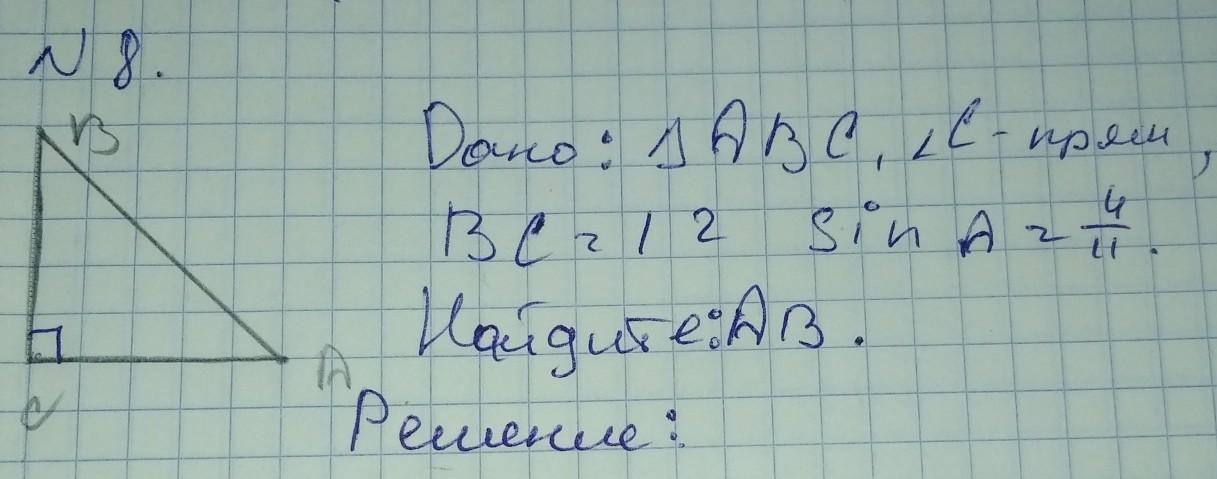 N 8.
B
Дано: Δ ABC, ∠C - прям,
BC = 12 sin A = 4/11.
Найдите: AB.
A
C
Решение: